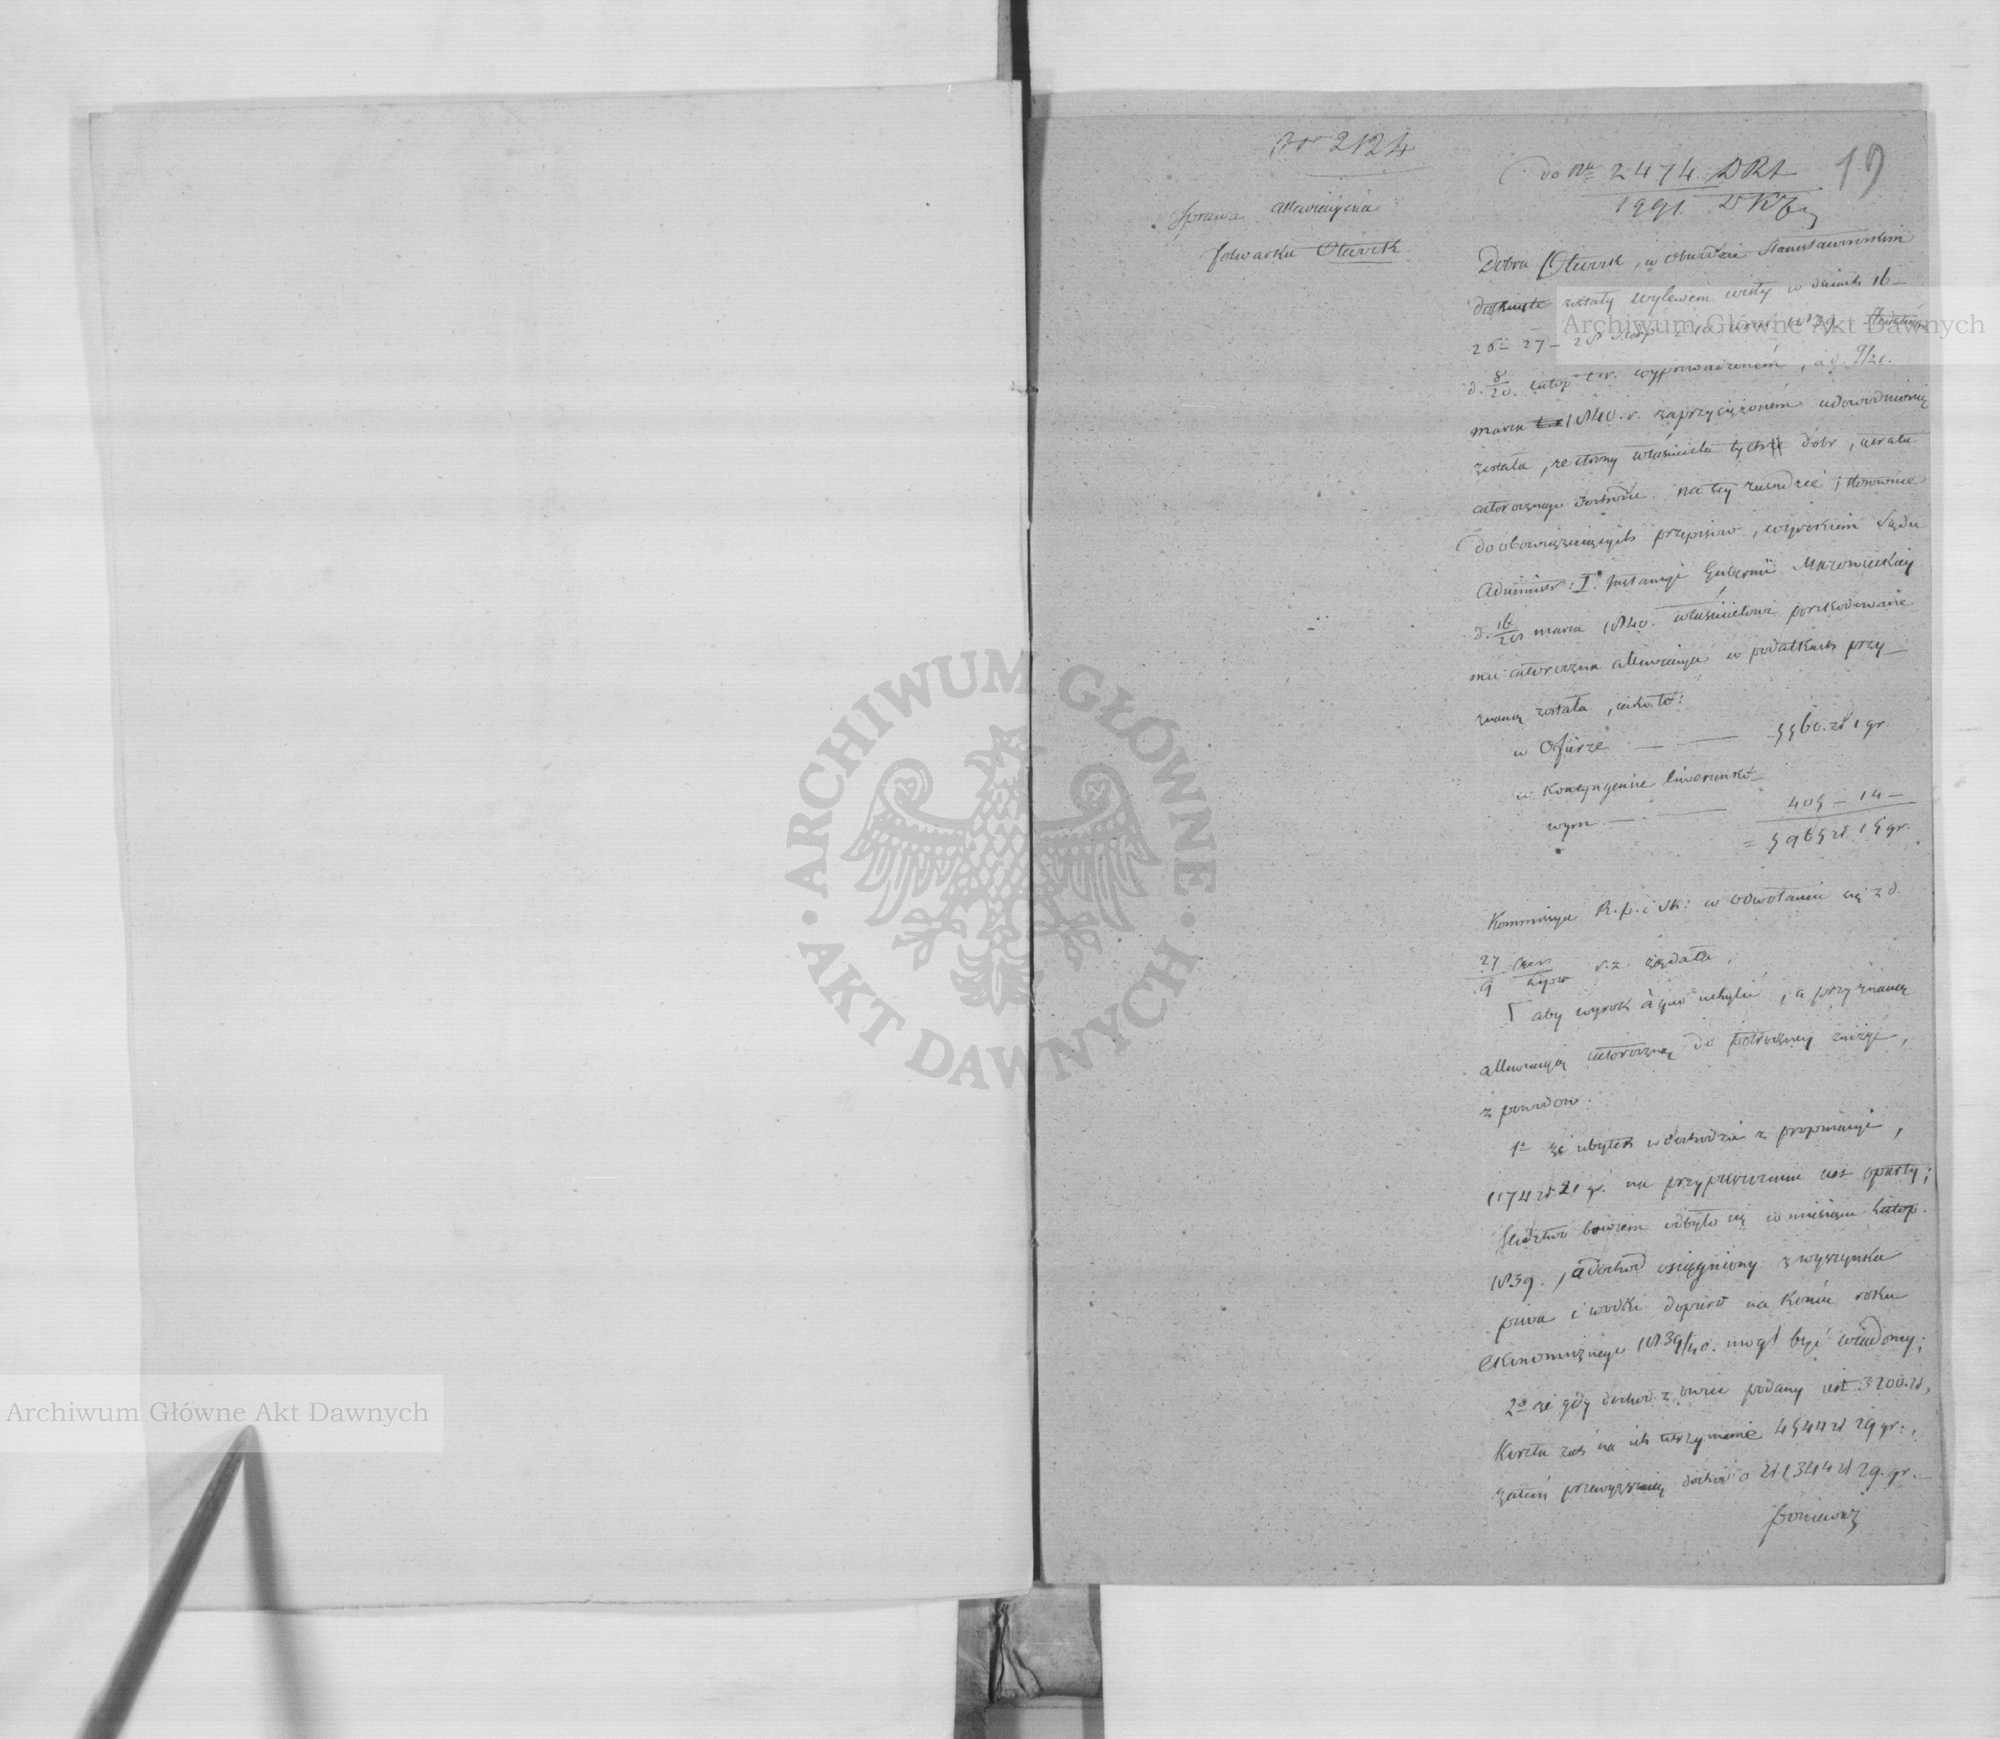 Nr 2124
19
do Nu 2474 DRt
1991
Sprawa allewiacyina
folwarku Otwock
Dobra Otwock, w obwodzie Stanisławowskim
dotknięte zostały wylewem wisły w dniach 16 –
26 – 27 – 28 1839.
d. 8/20. listop t.r. wyprowadzonem, a d. 9/21.
marca 1840. r. zaprzysiężonem udowodnioną
została, ze strony właściciela tychże dóbr, utrata
całorocznego dochodu. Na tey zasadzie i stosownie
do obowiązuiących przepisów, wyrokiem Sądu
Administr: I. Instancyi Gubernii Mazowieckiey
d. 16/28 marca 1840. właścicielowi poszkodowane
mu całoroczna allewiacya w podatkach przy
znaną została, iako to:
w Ofiarze — — 5560. zł 1 gr.
w Kontyngensie liwerunko
wym — — 405 — 14 —
= 5965 zł. 15 gr.
Kommissya R. P. i Sk: w odwołaniu się z d.
27 Czer / 9 Lipca r. z. żądała,
aby wyrok à quo uchylić, a przyznaną
allewiacyą całoroczną do półroczney zniżyć,
z powodów.
1o że ubytek w dochodzie z propinacyi,
1174 zł. 21 gr. na przypuszczeniu iest oparty;
śledztwo bowiem odbyło się w miesiącu listop.
1839., a dochód osiągniony z wyszynku
piwa i wódki dopiero na końcu roku
ekonomicznego 1839/40. mógł być wiadomy;
2o że gdy dochód z owiec podany iest 3200. zł,
koszta zaś na ich utrzymanie 4544 zł 29 gr.,
zatem przewyższaią dochód o zł. 1344 zł 29. gr. —
ponieważ
Archiwum Główne Akt Dawnych
Archiwum Główne Akt Dawnych
ARCHIWUM GŁÓWNE AKT DAWNYCH